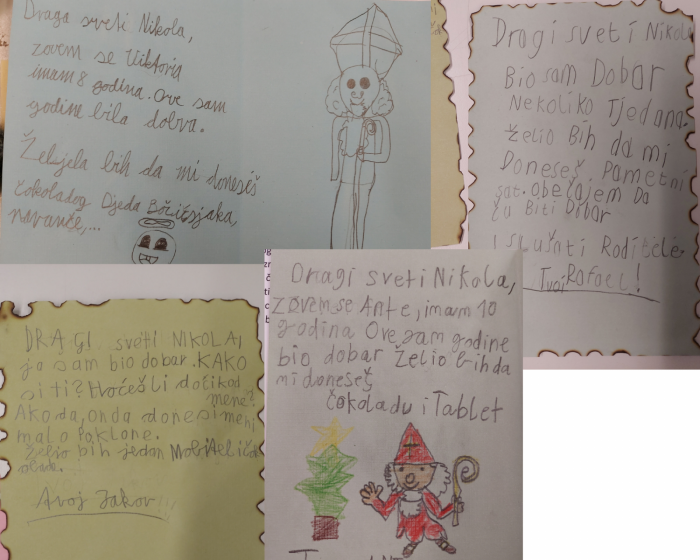 Draga sveti Nikola,
zovem se Viktoria
imam 8 godina. Ove sam
godine bila dobra.
Željela bih da mi doneseš
čokoladog Djeda Božićnjaka,
naranče,...
Dragi sveti Nikola
Bio sam Dobar
Nekoliko Tjedana.
želio Bih da mi
Doneseš Pametni
sat. obećajem Da
ću Biti Dobar
I slušati Roditelje
Tvoj Rafael!
DRAGI sveti NIKOLA,
ja sam bio dobar. KAKO
si ti? Hoćeš li doći kod
mene?
Ako da, onda donesi meni
malo Poklone.
želio bih jedan Mobitel i
Avoj Jakov
Dragi sveti Nikola,
zovem se Ante, imam 10
godina Ove sam godine
bio dobar želio bih da
mi doneseš
čokoladu i Tablet